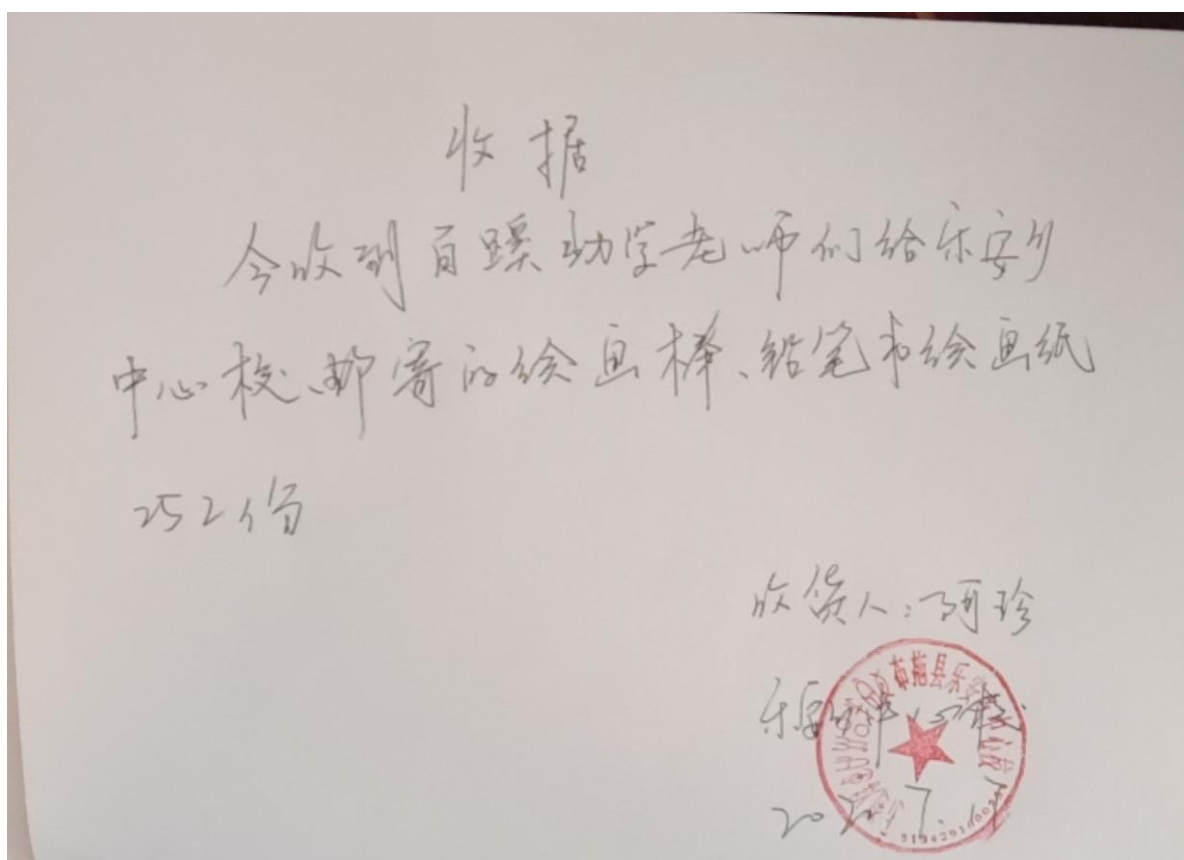 收据
今收到百蹊助学老师们给乐安乡
中心校、邮寄的绘画棒、铅笔和绘画纸
252份
收货人:阿珍
乐安乡中心校
布拖县乐安